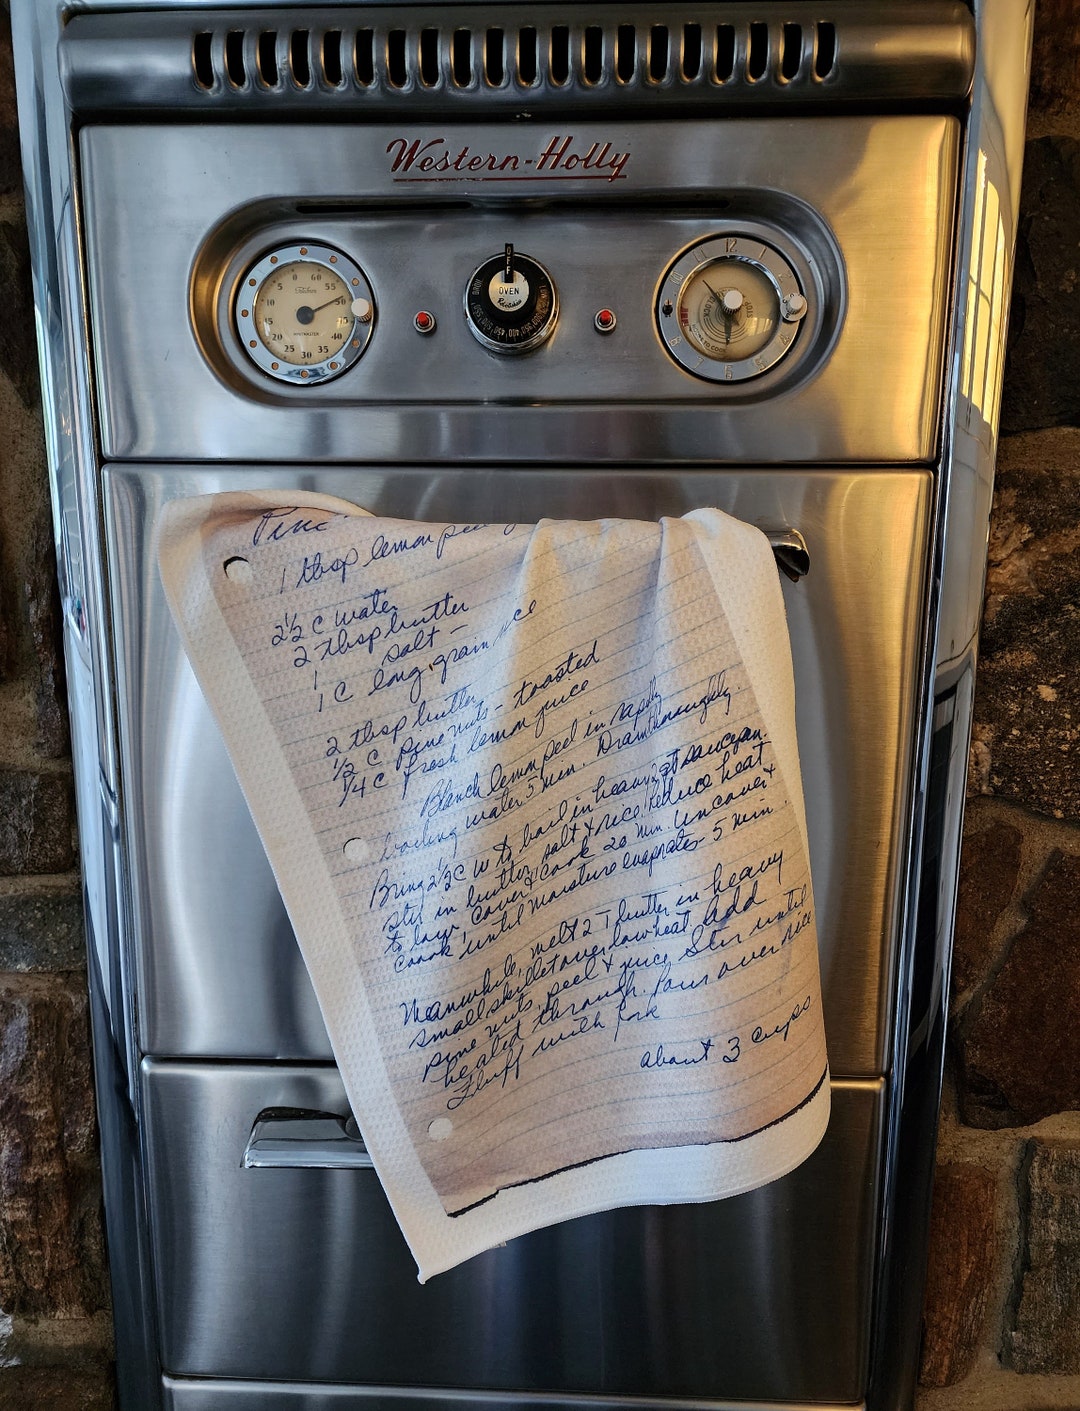 Western-Holly
0 60
5 55
10 50
15
20 40
25 30 35
MINITMASTER
OFF
OVEN
Robertshaw
12
Pine
1 tbsp lemon peel
2½ C water
2 tbsp butter
1 salt —
1 C long grain rice
2 tbsp butter
⅓ C pine nuts - toasted
¼ C fresh lemon juice
Blanch lemon peel in rapidly
boiling water 5 min. Drain thoroughly.
Bring 2½ C w to boil in heavy 2 qt saucepan.
Stir in butter, salt & rice, reduce heat
to low, cover & cook 20 min. Uncover &
coook until moisture evaporates 5 min.
Meanwhile, melt 2 T butter in heavy
small skillet over low heat. Add
pine nuts, peel & juice. Stir until
heated through. Pour over rice
Fluff with fork
about 3 cups